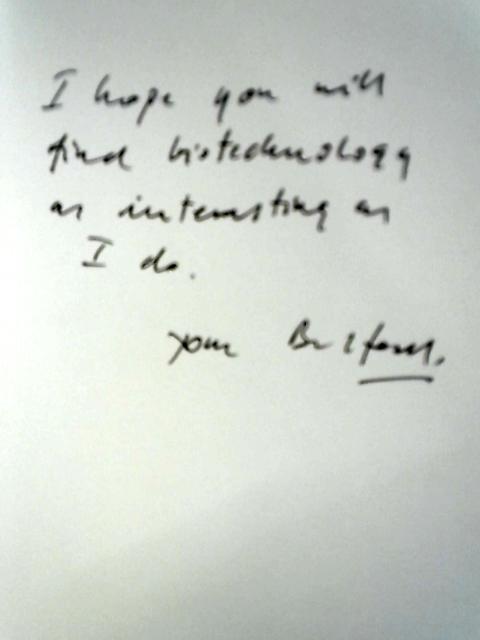 I hope you will
find biotechnology
as interesting as
I do.
your